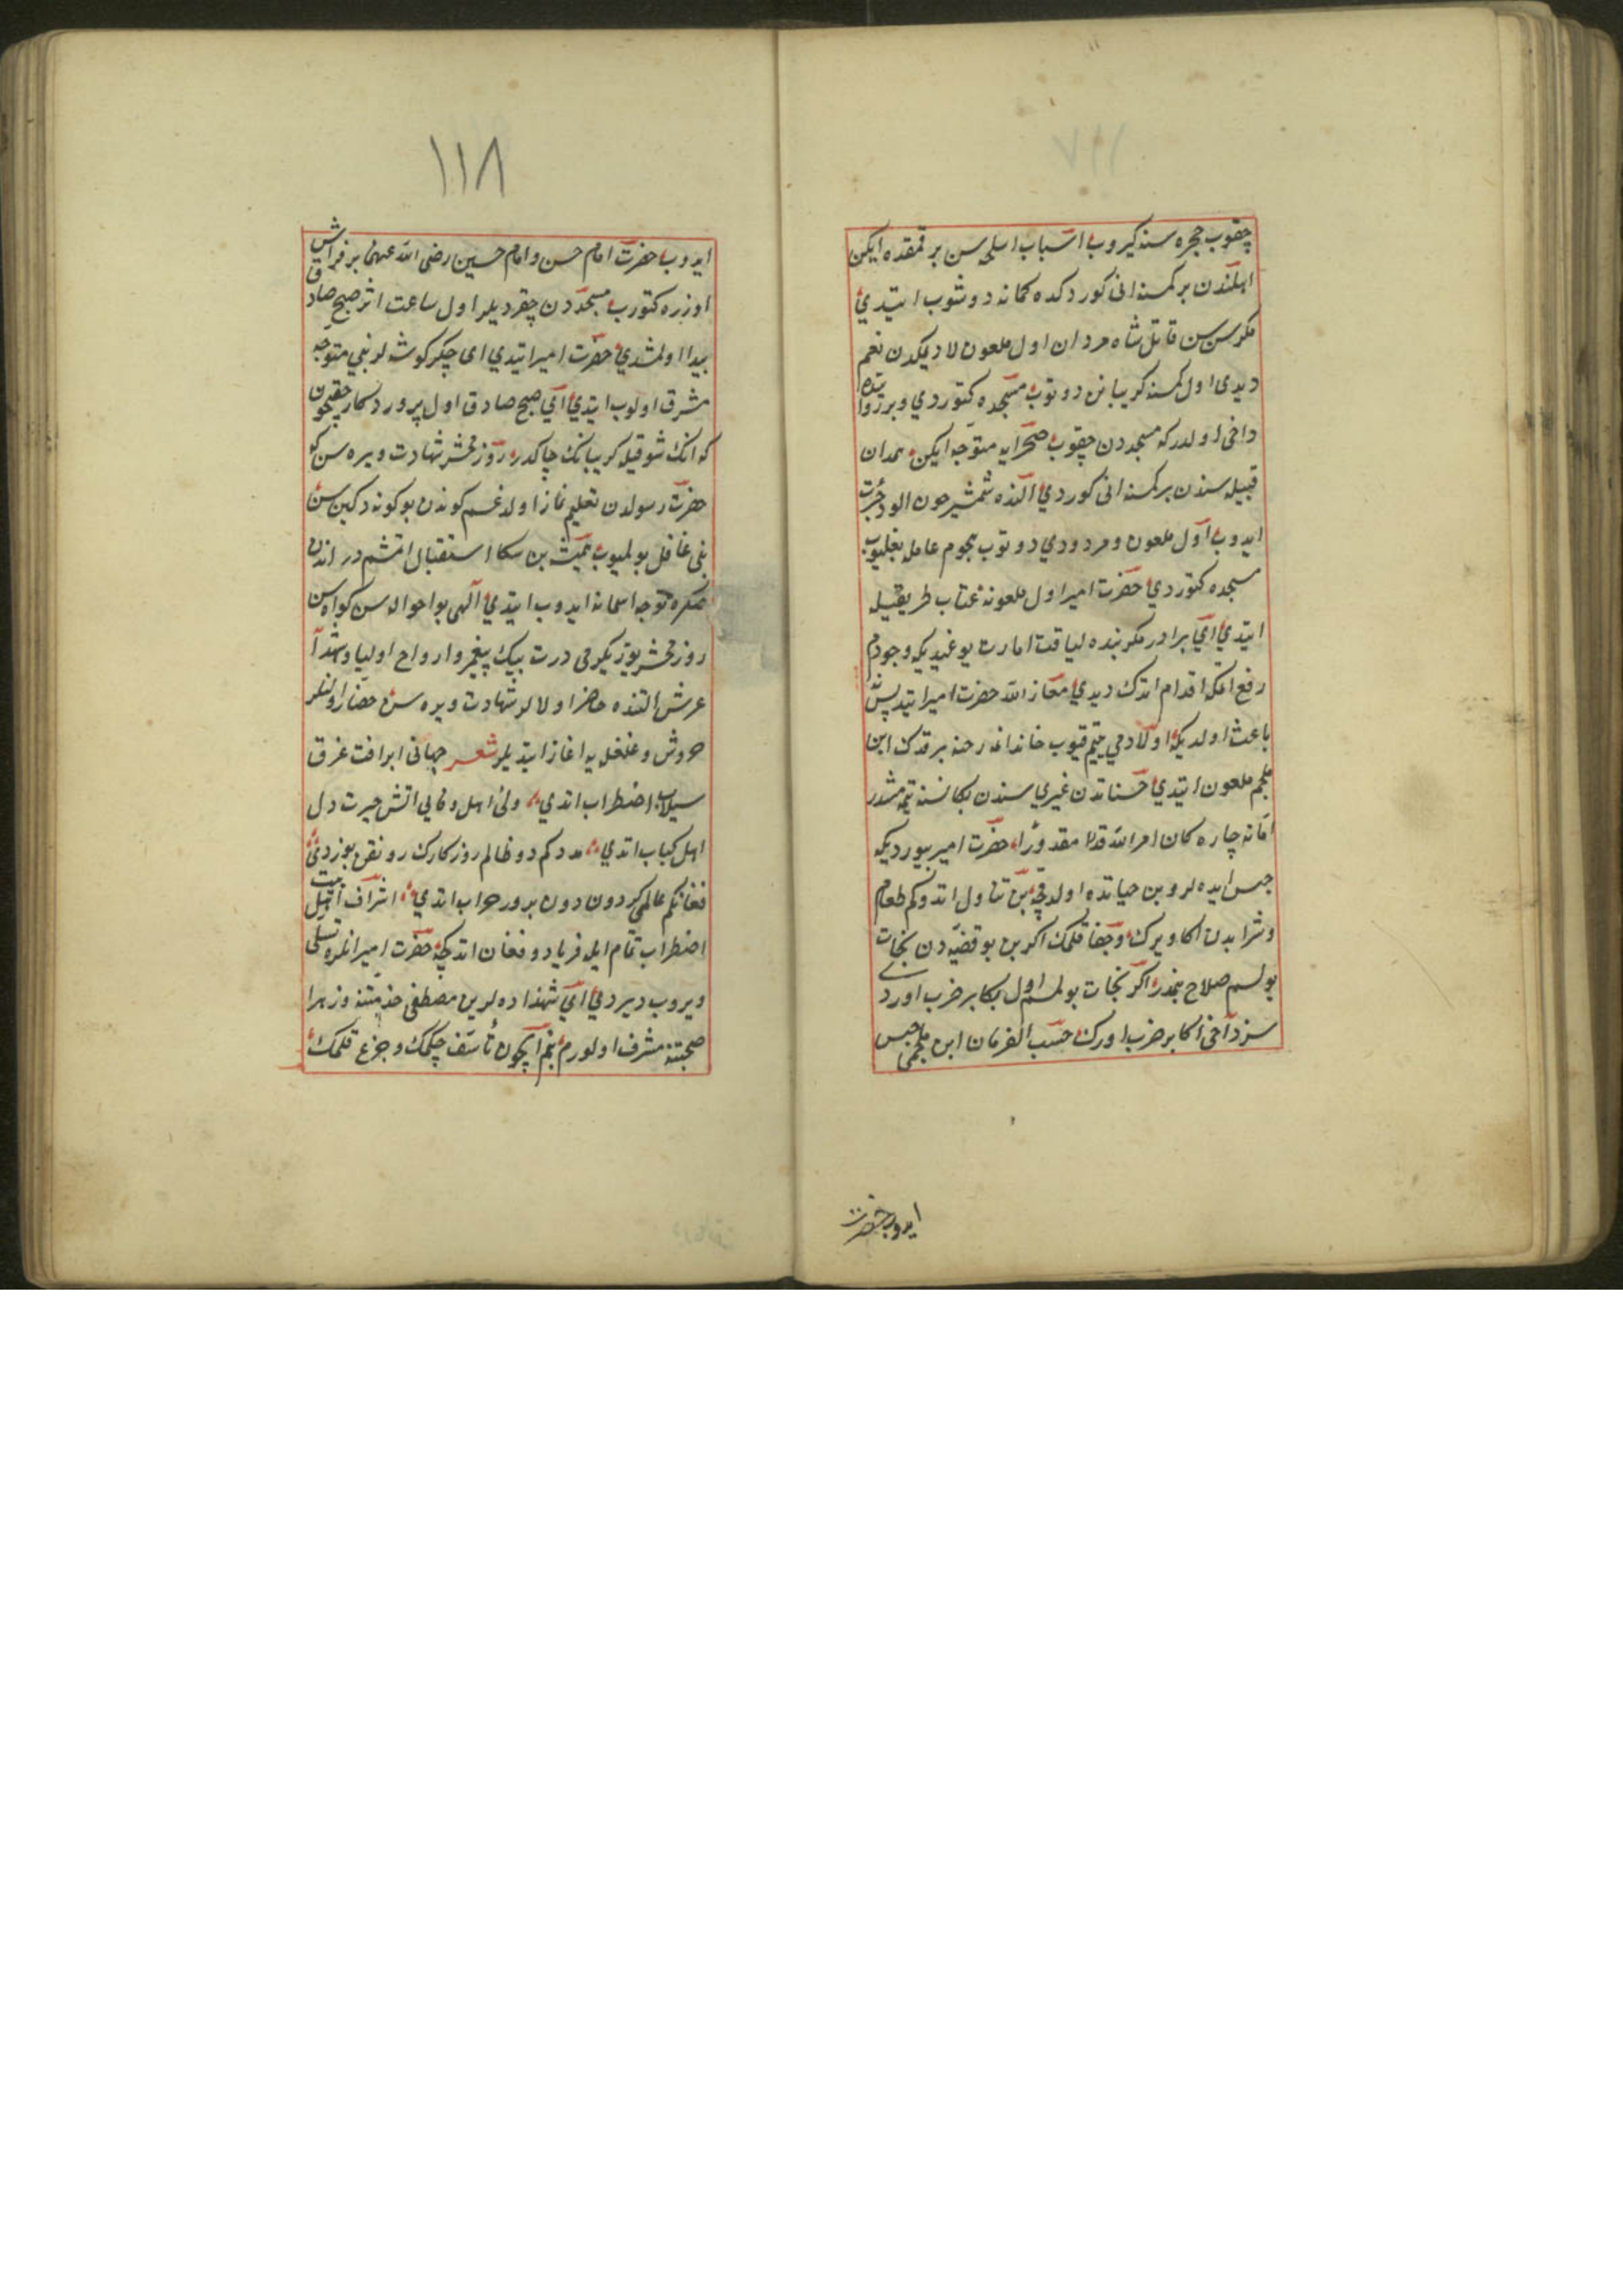 چقوب حجره سنه كيروب اسباب اسلحه سن بر قمقده ايكن
اهلندن بر كمسنه انى كوردكده كمانه دوشوب ايتدي
مكر سن سن قاتل شاه مردان اول ملعون لا ديمكدن نعم
ديدى اول كمسنه كريبانن دوتوب مسجده كتوردي وبر روايتده
داخى اولدركه مسجددن چقوب صحرايه متوجه ايكن همدان
قبيله سندن بر كمسنه انى كوردي النده شمشير خون الود جرئت
ايدوب اول ملعون ومردودي دوتوب هجوم عامله بغليوب
مسجده كتوردي حضرت امير اول ملعونه عتاب طريقيله
ايتدي اى برادر مكر بنده لياقت امارت يوغيديكه وجودم
رفع اتمكه اقدام اتدك ديدي معاز الله حضرت امير ايتدي پس نه
باعث اولديكه اولادمي يتيم قيوب خاندانمه رخنه برقدك ابن
ملجم ملعون ايتدي حسناتدن غيري سندن بكا نسنه يتمه مشدر
اما نه چاره كان امر الله قدرا مقدورا حضرت امير بيوردى كه
حبس ايده لر وبن حياتده اولدقچه بن تناول اتدوكم طعام
وشرابدن اكا ويرك وجفا قلمك اكر بن بو قضيه دن نجات
بولسم صلاح بنمدر اكر نجات بولمسم اول بكا بر ضرب اوردى
سز داخى اكا بر ضرب اورك حسب الفرمان ابن ملجمى حبس
ايدوب حضرت
١١٨
ايدوب حضرت امام حسن وامام حسين رضى الله عنهما بر فراش
اوزره كتورب مسجددن چقرديلر اول ساعت اثر صبح صادق
پيدا اولمشدي حضرت امير ايتدي اى جكر كوشه لر بني متوجه
مشرق اولوب ايتدي اى صبح صادق اول پروردكار حقيچون
كه انك شوقيله كريبانك چاكدر روز محشر شهادت ويره سن كه
حضرت رسولدن تعليم نماز اولدغم كوندن بو كونه دكين سن
بنى غافل بولميوب هميشه بن سكا استقبال اتمشم در اندن
صكره توجه اسمانه ايدوب ايتدي الهى بو احواله سن كواه سن
روز محشر يوز يكرمى درت بيك پيغمبر وارواح اوليا وشهدا
عرش التنده حاضر اولالر شهادت ويره سن حضار اولنلر
خروش وغلغله يه اغاز ايتديلر شعر جهانى ابر افت غرق
سيلاب اضطراب اتدي ولى اهل وفايى اتش حيرت دل
اهل كباب اتدي مددكم دو ظالم روزكارك رونقن بوزدي
فغانكم عالمى كردون دون پرور خراب اتدي اشراف اهل بيت
اضطراب تمام ايله فرياد وفغان اتدكچه حضرت امير انلره تسلى
ويروب ديردي اى شهزاده لر بن مصطفى خدمتنه وزهرا
صحبتنه مشرف اولورم بنم ايچون تأسف چكمك وجزع قلمك